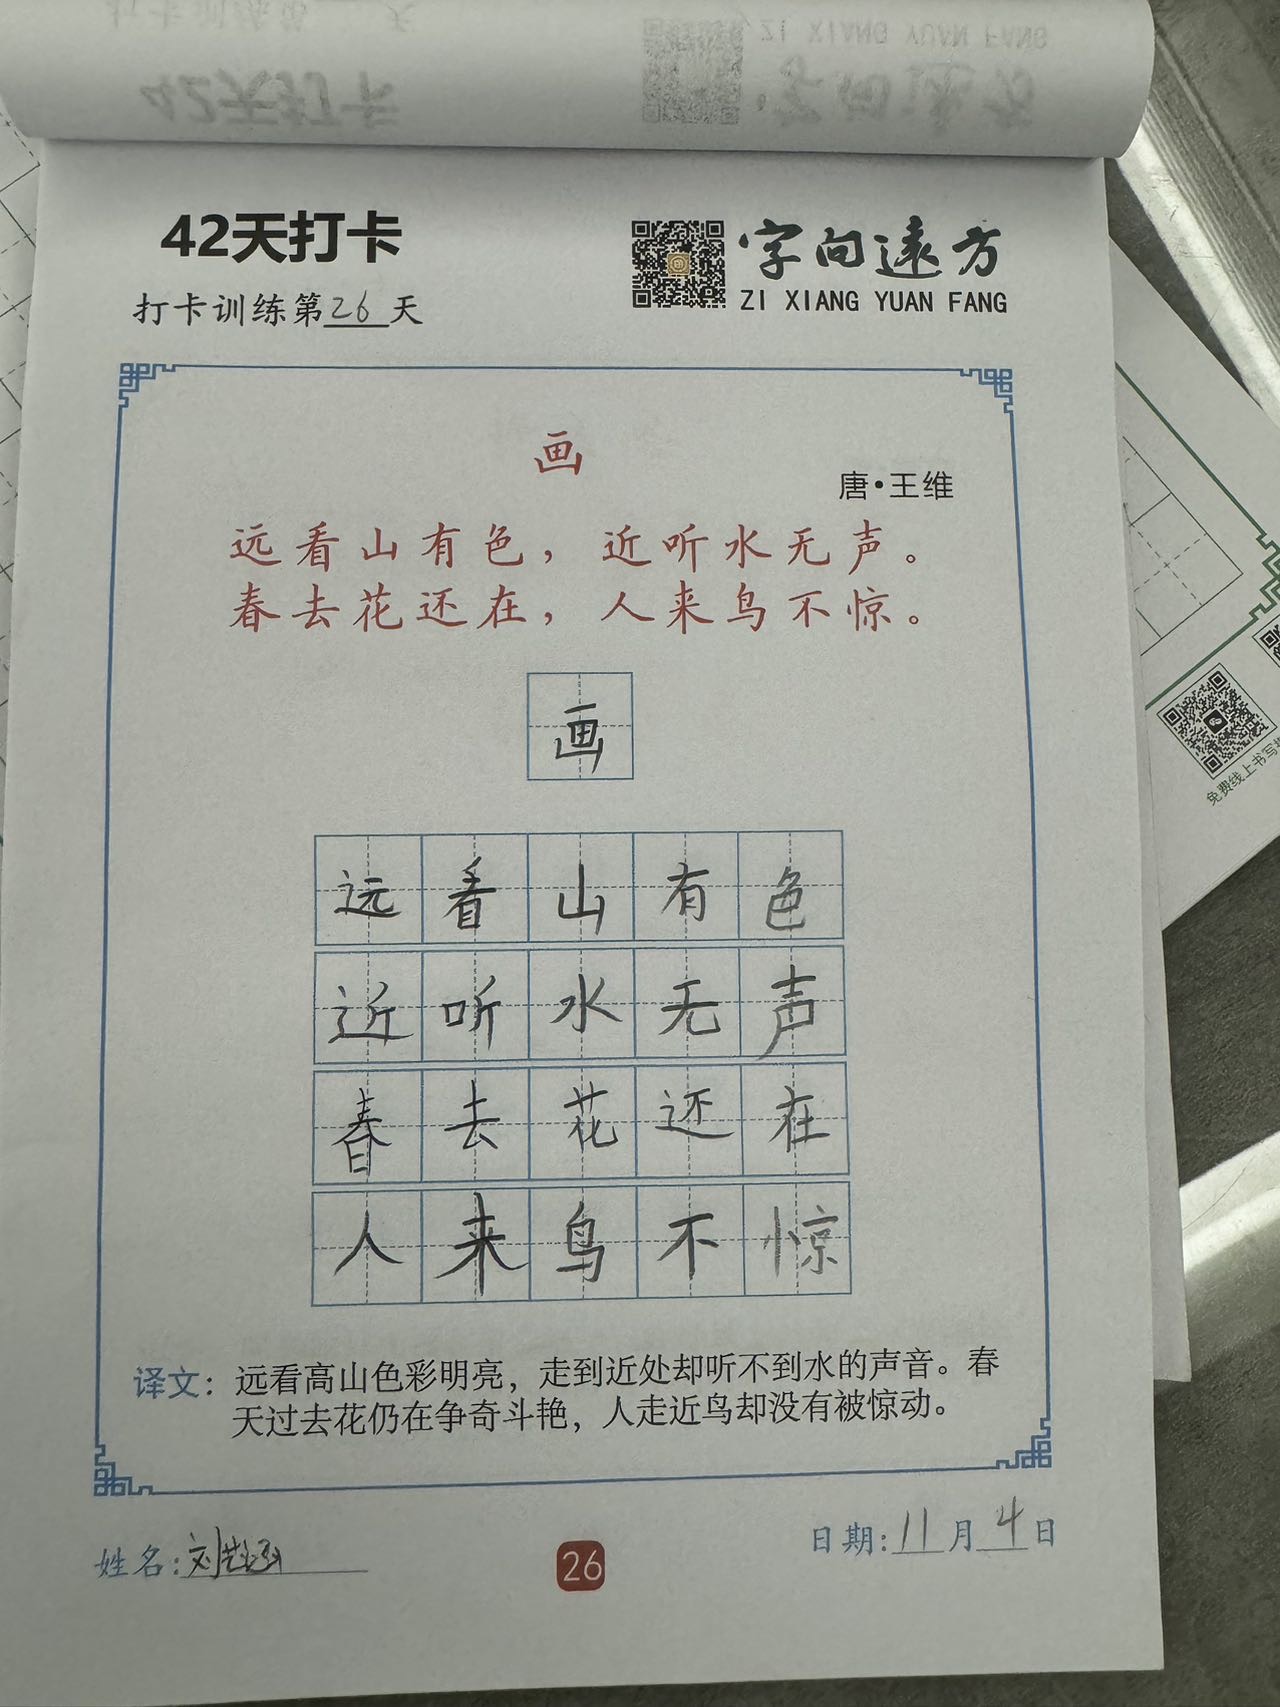 42天打卡
打卡训练第26天
字向远方
ZI XIANG YUAN FANG
画
唐·王维
远看山有色，近听水无声。
春去花还在，人来鸟不惊。
画
远看山有色
近听水无声
春去花还在
人来鸟不惊
译文：远看高山色彩明亮，走到近处却听不到水的声音。春
天过去花仍在争奇斗艳，人走近鸟却没有被惊动。
姓名：刘
26
日期：11月4日
免费线上书写